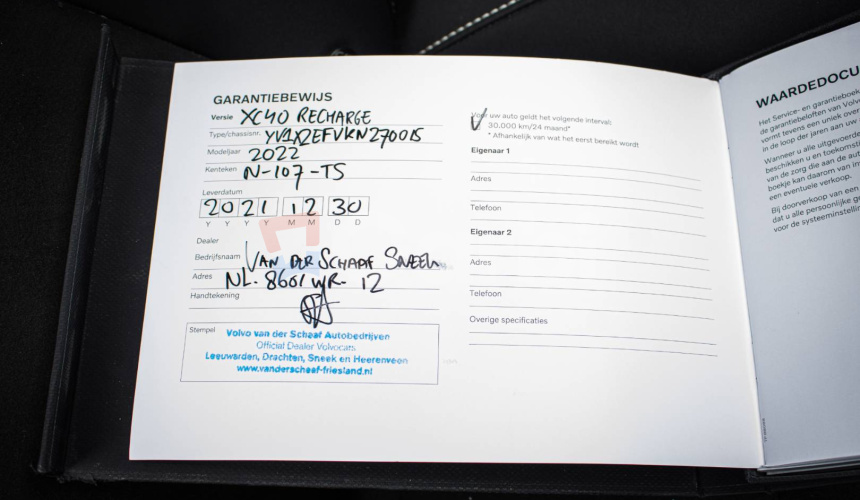 GARANTIEBEWIJS
Versie XC40 RECHARGE
Type/chassisnr. YV1XZEFVKN270015
Modeljaar 2022
Kenteken N-107-TS
Leverdatum
2021 12 30
Y Y Y Y M M D D
Dealer
Bedrijfsnaam VAN DER SCHAAF SNEEK
Adres NL. 8601 WR- 12
Handtekening
Stempel
Volvo van der Schaaf Autobedrijven
Official Dealer Volvocars
Leeuwarden, Drachten, Sneek en Heerenveen
www.vanderschaaf-friesland.nl
Voor uw auto geldt het volgende interval:
30.000 km/24 maand*
* Afhankelijk van wat het eerst bereikt wordt
Eigenaar 1
Adres
Telefoon
Eigenaar 2
Adres
Telefoon
Overige specificaties
WAARDEDOCU
Het Service- en garantieboek
de garantiebeloften van Volv
vormt tevens een uniek over
in de loop der jaren aan uw
Wanneer u alle uitgevoerde
beschikken u en toekomsti
van de zorg die aan de aut
boekje kan daarom van in
een eventuele verkoop.
Bij doorverkoop van een
dat u alle persoonlijke ge
voor de systeeminstellin